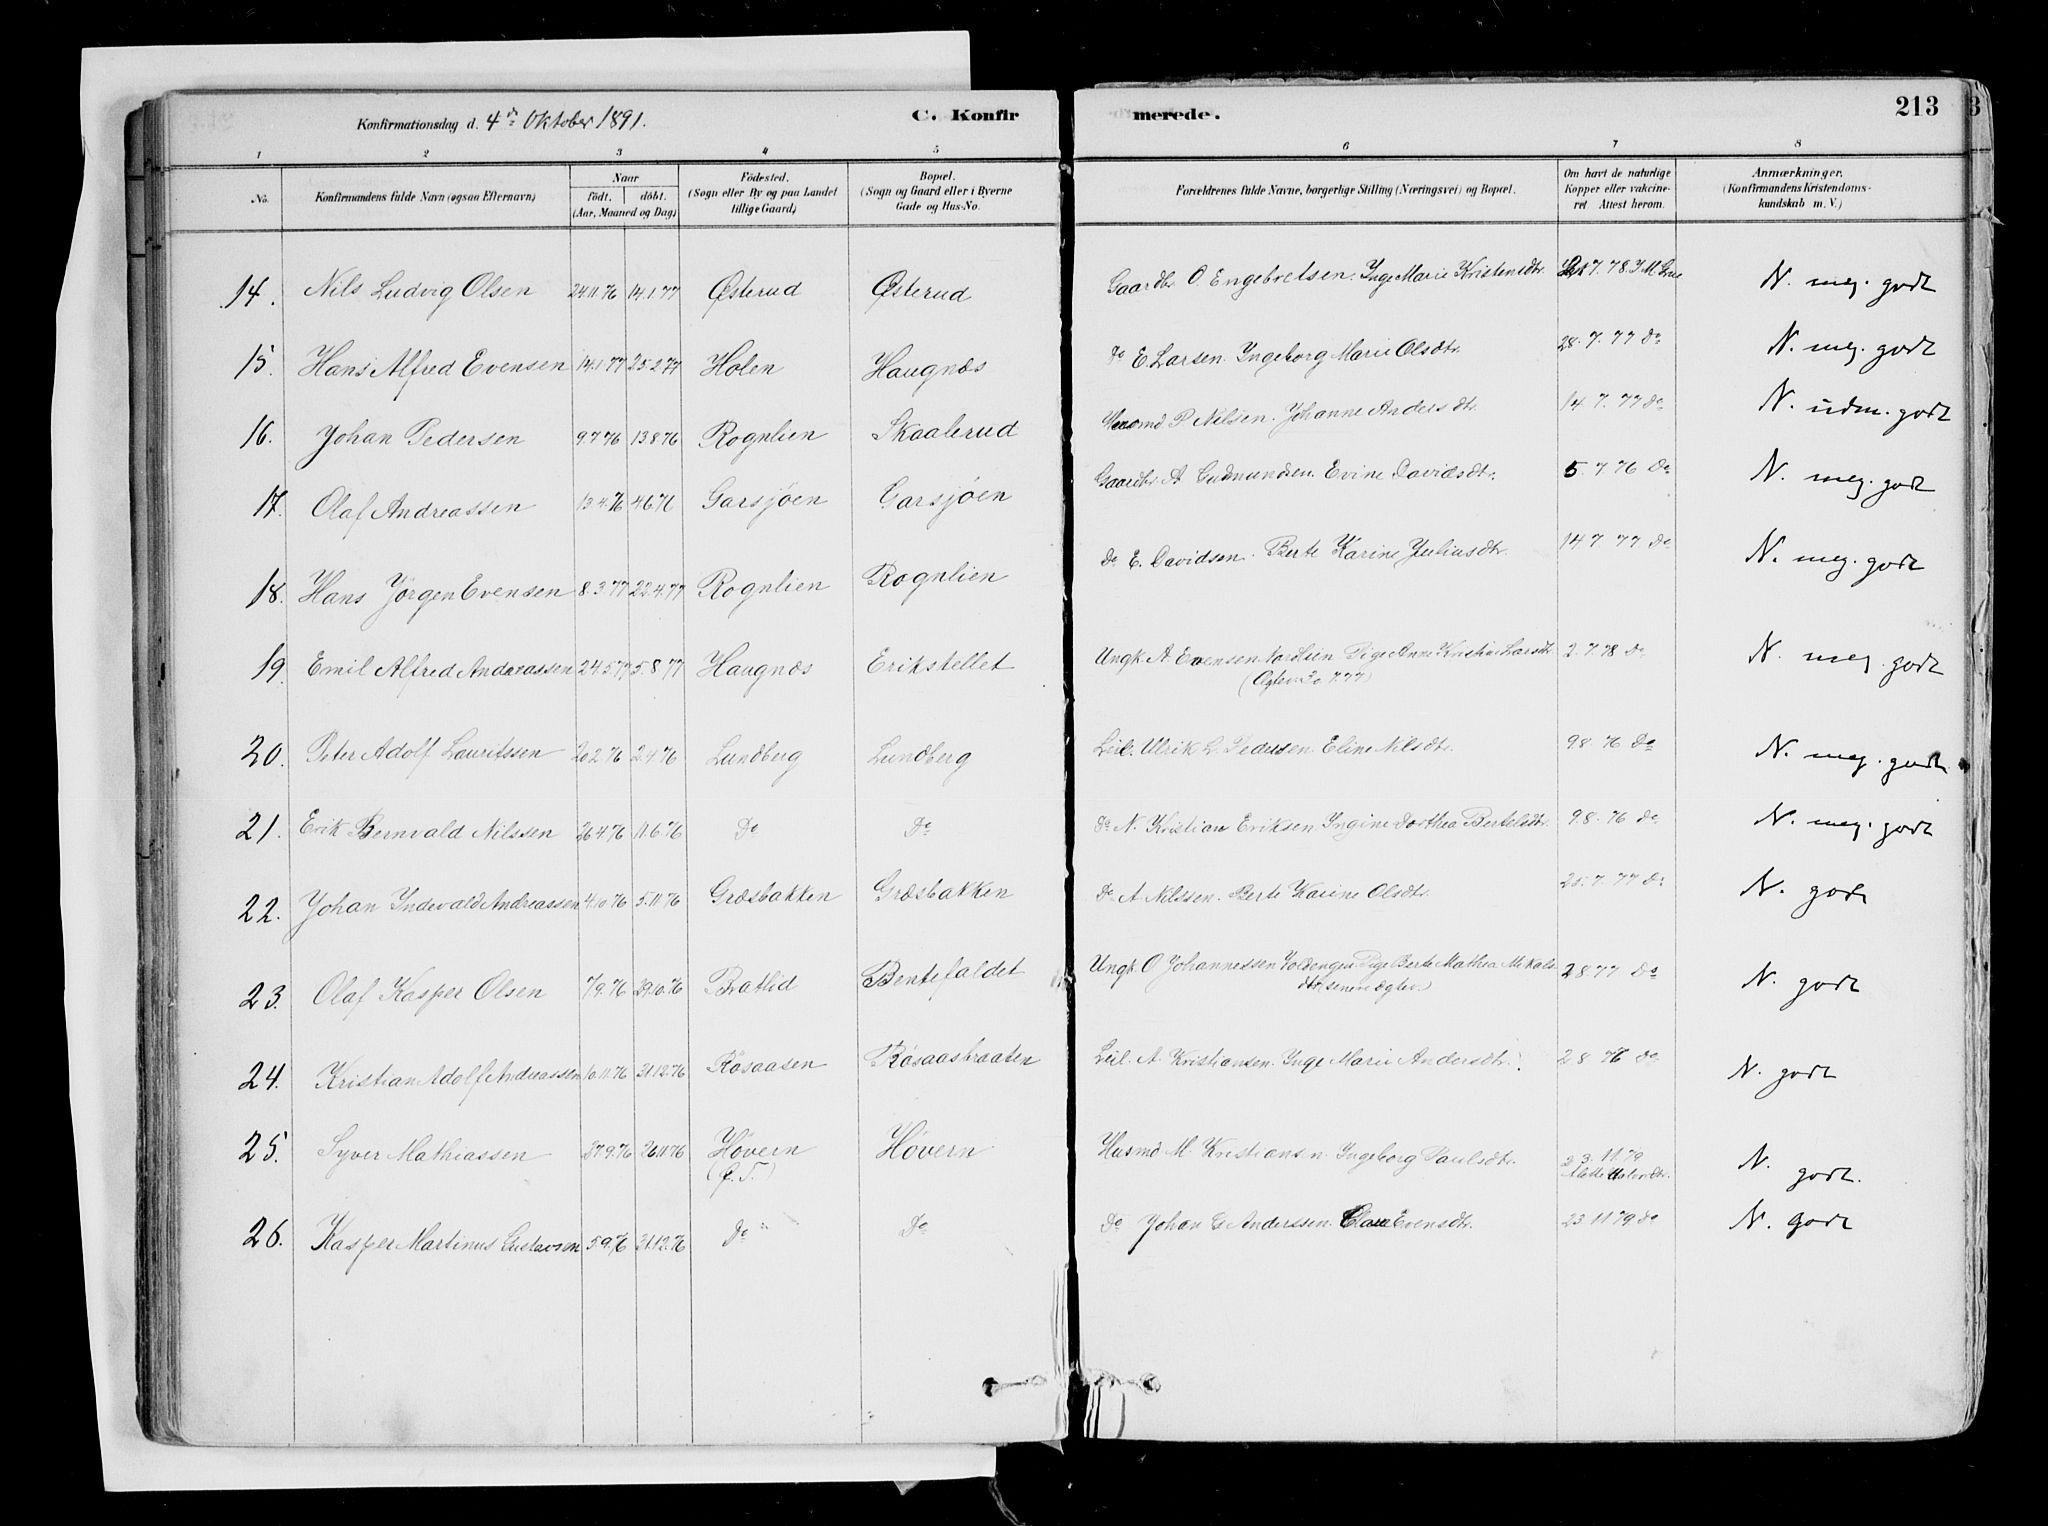 Konfirmationsdag d. 4de Oktober 1891.
C. Konfirmerede.
213
1 2 3 4 5 6 7 8
No.
Konfirmandens fulde Navn (ogsaa Efternavn)
Naar
födt. döbt.
(Aar, Maaned og Dag)
Födested.
(Sogn eller By og paa Landet
tillige Gaard)
Bopæl.
(Sogn og Gaard eller i Byerne
Gade og Hus-No.
Forældrenes fulde Navne, borgerlige Stilling (Næringsvei) og Bopæl.
Om havt de naturlige
Kopper eller vakcine-
ret Attest herom.
Anmærkninger,
(Konfirmandens Kristendoms-
kundskab m. V.)
14. Nils Ludvig Olsen 24.11.76 14.1.77 Østerud Østerud Gaardbr. O. Engebretsen. Inge Marie Kristensdtr. 7.78 N. meg. godt
15. Hans Alfred Evensen 14.1.77 25.2.77 Holen Haugnæs Do E. Larsen. Ingeborg Marie Olsdtr. 28.7.77 Do N. meg. godt
16. Johan Pedersen 9.7.76 13.8.76 Rognlien Skaalerud P. Nilsen. Johanne Andersdtr. 14.7.77 Do N. udm. godt
17. Olaf Andreassen 13.4.76 4.6.76 Garsjöen Garsjöen Gaardbr. A. Gudmundsen. Evine Davidsdtr. 5.7.76 Do N. meg. godt
18. Hans Jörgen Evensen 8.3.77 22.4.77 Rognlien Rognlien Do E. Davidsen. Berte Karine Juliusdtr. 14.7.77 Do N. meg. godt
19. Emil Alfred Andreassen 24.5.77 5.8.77 Haugnæs Erikstellet Ungk. A. Evensen Nordlien Pige Anne Kristine Larsdtr. 2.7.78 Do N. meg. godt
(Ægtev. 30.7.77)
20. Peter Adolf Lauritssen 20.2.76 2.4.76 Lundberg Lundberg Leil. Ulrik L. Pedersen. Eline Nilsdtr. 9.8.76 Do N. meg. godt
21. Erik Bernvald Nilssen 26.4.76 11.6.76 Do Do Do N. Kristian Eriksen. Ingine Dorthea Bertelsdtr. 9.8.76 Do N. meg. godt
22. Johan Indevald Andreassen 4.10.76 5.11.76 Græsbakken Græsbakken Do A. Nilssen. Berte Karine Olsdtr. 28.7.77 Do N. godt
23. Olaf Kasper Olsen 7.9.76 29.10.76 Brattlid Bentefaldet Ungk. O. Johannessen Pige Berte Mathea Mikals
dtr (senere Ægtev.) 2.8.77 Do N. godt
24. Kristian Adolf Andreassen 10.11.76 31.12.76 Rösaasen Rösaasbraaten Leil. A. Kristiansen. Inge Marie Andersdtr. 2.8.76 Do N. godt
25. Syver Mathiassen 7.9.76 26.11.76 Hövern Hövern Husmd M. Kristiansen. Ingeborg Paulsdtr. 23.11.79 N. godt.
26. Kasper Martinus Gustavsen 5.9.76 31.12.76 Do Do Do Johan G. Anderssen. Clara Evensdtr. 23.11.79 Do N. godt